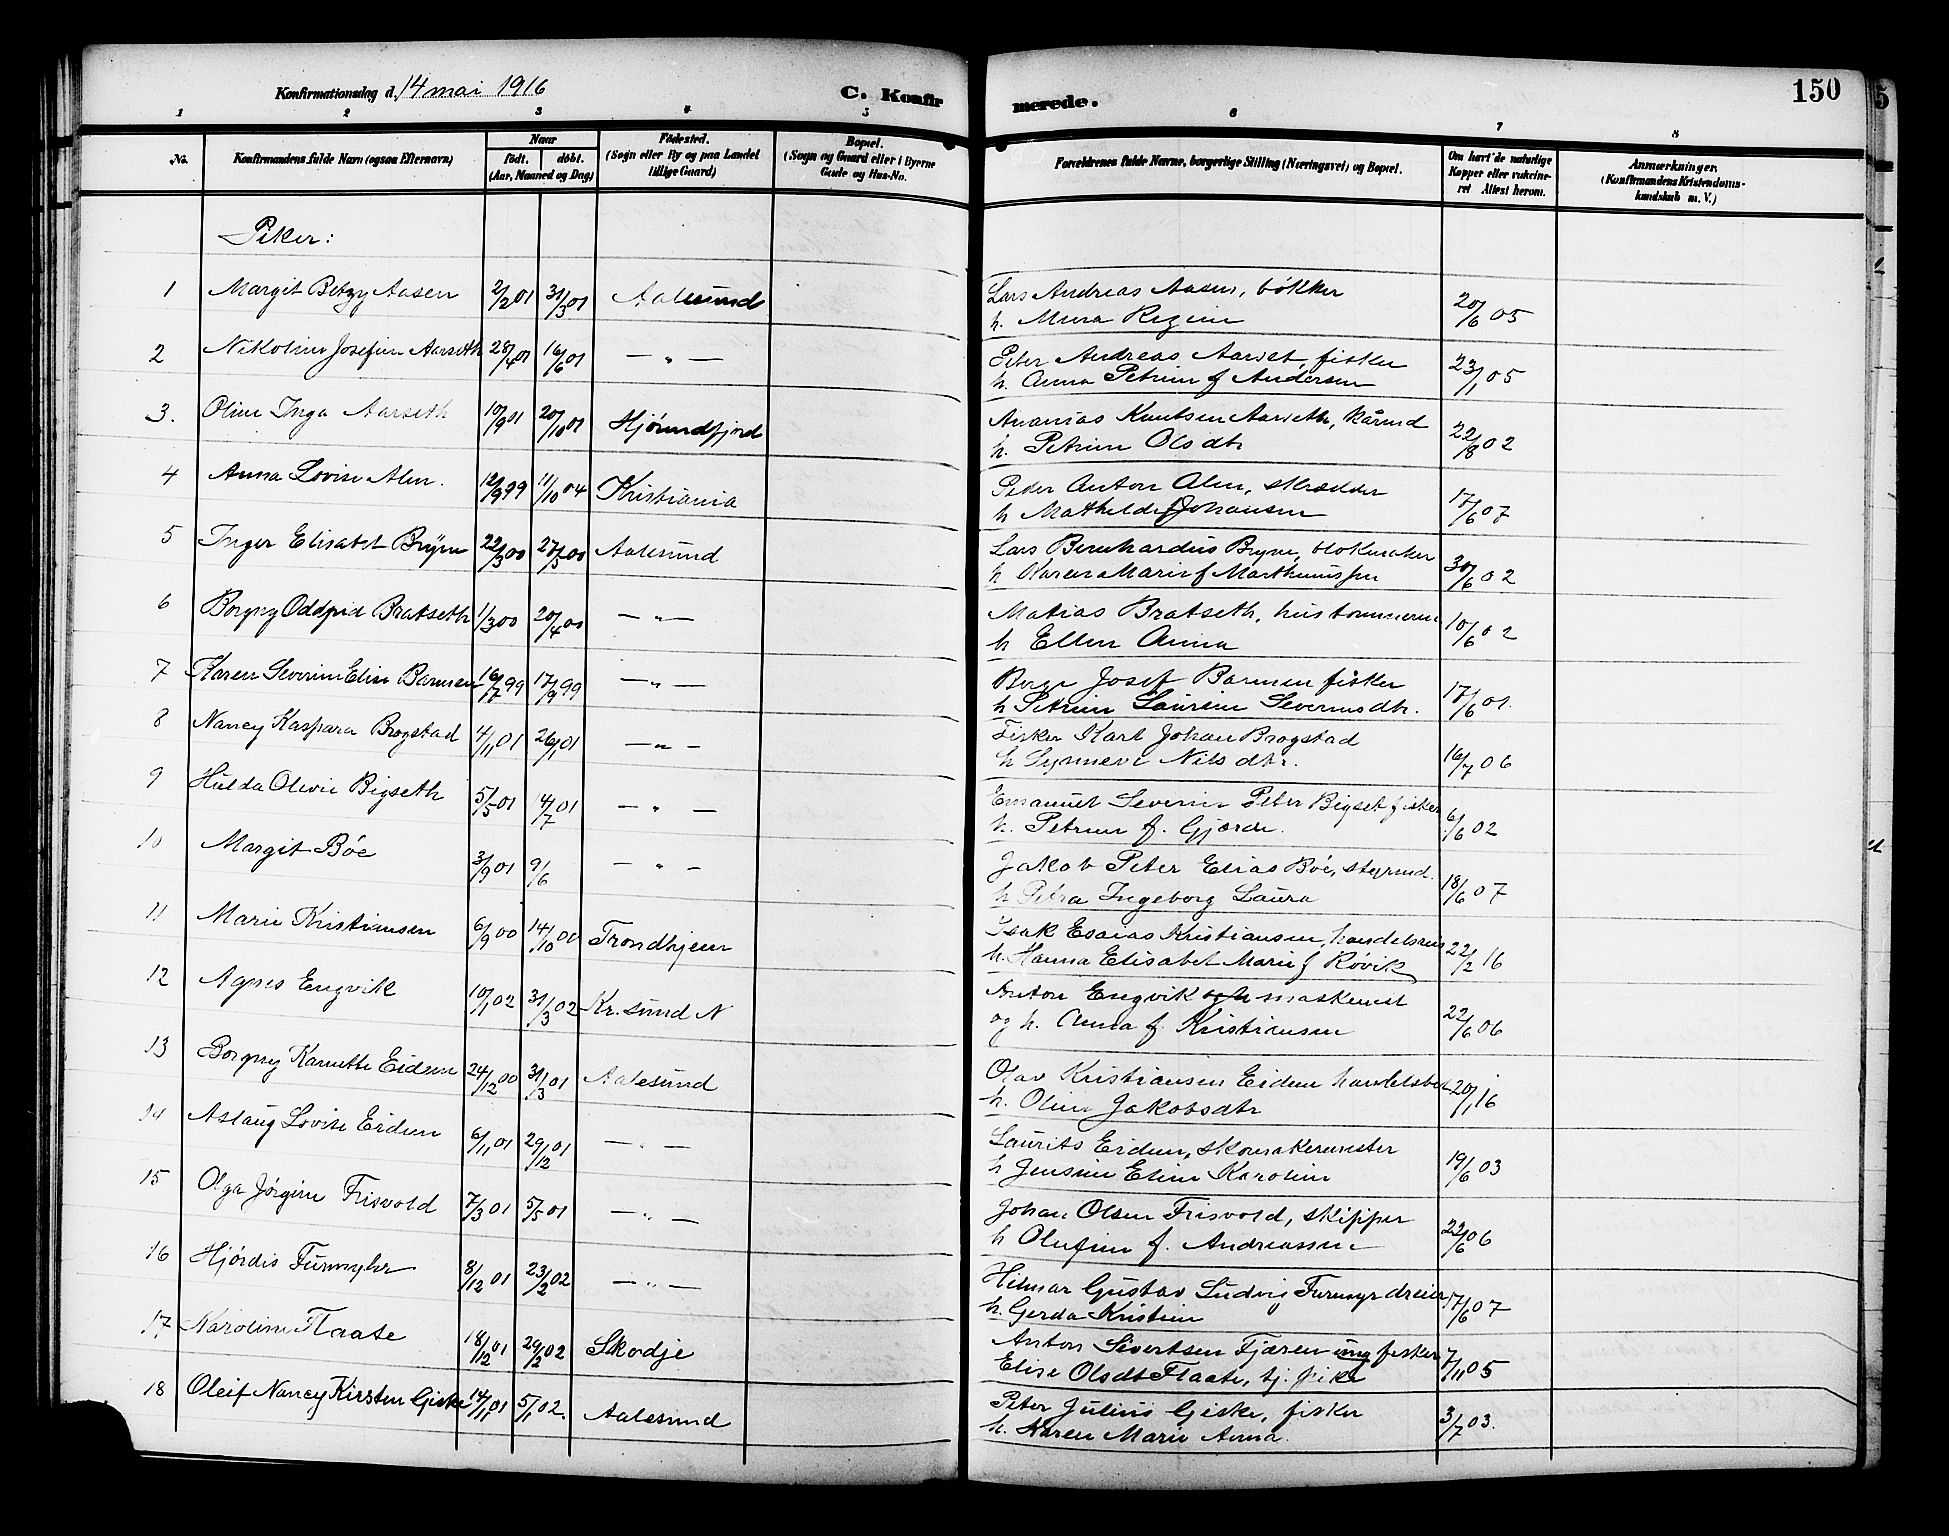 Konfirmationsdag d. 14 mai 1916 C. Konfirmerede. 150
1 2 3 4 5 6 7 8
No. Konfirmandens fulde Navn (ogsaa Efternavn) Naar født. døbt. (Aar, Maaned og Dag) Fødested. (Sogn eller By og paa Landet tillige Gaard) Bopæl. (Sogn og Gaard eller i Byerne Gade og Hus-No. Forældrenes fulde Navne, borgerlige Stilling (Næringsvei) og Bopæl. Om havt de naturlige Kopper eller vaccineret Attest herom. Anmærkninger. (Konfirmandens Kristendomskundskab m. V.)
Piker:
1 Margit Betzy Aasen 2/2 01 31/3 01 Aalesund Lars Andreas Aasen, bøkker 20/6 05
h. Regine
2 Nikoline Josefine Aarseth 28/4 01 16/6 01 — " — Peter Andreas Aarset, fisker 23/1 05
h. Anna Petrine f Andersen
3. Oline Inga Aarseth 10/9 01 20/10 01 Hjørundfjord Ananias Knutsen Aarseth, kårmd 22/8 02
h. Petrine Olsdtr
4 Anna Lovise Alm. 12/9 99 11/10 04 Kristiania Peder Anton Alm, skrædder 17/6 07
h Mathilde f Johansen
5 Inger Elisabet Bryne 22/3 00 27/5 00 Aalesund Lars Bernhardus Bryne, blokmaker 30/6 02
h Karen Marie f Marthinussen
6 Borgny Oddfrid Bratseth 1/3 00 20/4 00 — " — Matias Bratseth, hustømmerm 10/6 02
h Ellen Anna
7 Karen Severine Elise Barmen 16/7 99 17/9 99 — " — Josef Barmen fisker 17/6 01.
h Petrine Laurine Severinsdtr.
8 Nancy Kaspara Brogstad 4/11 01 26/1 01 — " — Fisker Karl Johan Brogstad 16/7 06
h Synneve Nilsdtr.
9 Hulda Olivie Bigseth 5/5 01 14/7 01 — " — Emanuel Severin Peter Bigset fisker 6/6 02
h. Petrine f. Gjørde.
10 Margit Böe 3/9 01 9/6 — " — Jakob Peter Elias Böe, styrmd. 18/6 07
h Petra Ingeborg Laura
11 Marie Kristiansen 6/9 00 14/10 00 Trondhjem Isak Esaias Kristiansen, handelsreis 22/2 16
h. Hanna Elisabet Marie f Røvik
12 Agnes Engvik 10/1 02 31/3 02 Kr.sund N Anton Engvik maskinist 22/6 06
og h. Anna f. Kristiansen
13 Borgny Karnette Eidem 24/12 00 31/3 01 Aalesund Olav Kristiansen Eidem handelsbet. 20/1 16
h. Oline Jakobsdtr
14 Aslaug Lovise Eidem 6/11 01 29/12 01 — " — Laurits Eidem, skomakermester 19/6 03
h Jensine Eline Karoline
15 Olga Jørgine Frisvold 7/3 01 5/5 01 — " — Johan Olsen Frisvold, skipper 22/6 06
h Olufine f. Andreassen
16 Hjørdis Furmyhr 8/12 01 23/2 02 — " — Hilmar Gustav Ludvig Furmyr dreier 17/6 07
h. Gerda Kristine
17 Karoline Flaate 18/12 01 29/2 02 Skodje Anton Sivertsen Fjæren ung fisker 7/11 05
Elise Olsdt Flaate, tj. pike
18 Oleif Nancy Kirsten Giske 14/11 01 5/1 02. Aalesund Peter Julius Giske, fisker 3/7 03.
h. Karen Marie Anna.